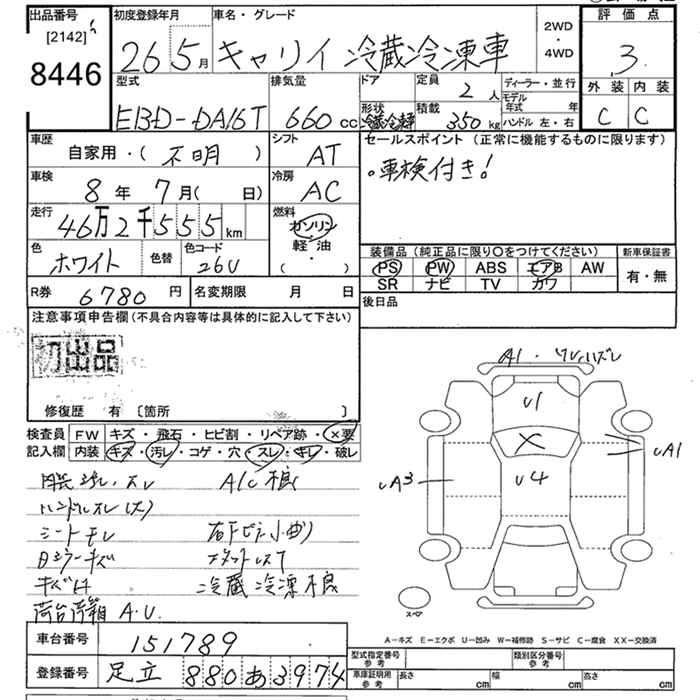 出品番号 初度登録年月 車名・グレード 評価点
[2142]
8446
26 5月 キャリイ 冷蔵冷凍車 2WD・4WD 3
型式 排気量 ドア 定員 2人 ディーラー・並行 外装 内装
EBD-DA16T 660cc 形状 冷蔵冷凍車 積載 350kg モデル年式 年 ハンドル 左・右 C C
車歴 自家用・(不明) シフト AT セールスポイント (正常に機能するものに限ります)
車検付き!
車検 8年 7月( 日) 冷房 AC
走行 46万2千555km 燃料 ガソリン・軽油・( )
色 ホワイト 色替 色コード 26U
装備品(純正品に限り○をつけてください) 新車保証書
PS PW ABS エアB AW 有・無
SR ナビ TV カワ
R券 6780円 名変期限 月 日 後日品
注意事項申告欄(不具合内容等は具体的に記入して下さい)
初出品
修復歴 有 [箇所 ]
検査員 FW キズ・飛石・ヒビ割・リペア跡・×要
記入欄 内装 キズ・汚レ・コゲ・穴・スレ・キレ・破レ
A/C不良
ハンドルスレ(大)
シート
キズ
冷蔵冷凍不良
荷台荷箱 A.U.
A1
U1
X
U4
A1
A3
スペア
A-キズ E-エクボ U-凹み W-補修跡 S-サビ C-腐食 XX-交換済
車台番号 151789
登録番号 足立 880 あ 3974
型式指定番号 参考 類別区分番号 参考
車庫証明用 参考 長さ cm 幅 cm 高さ cm